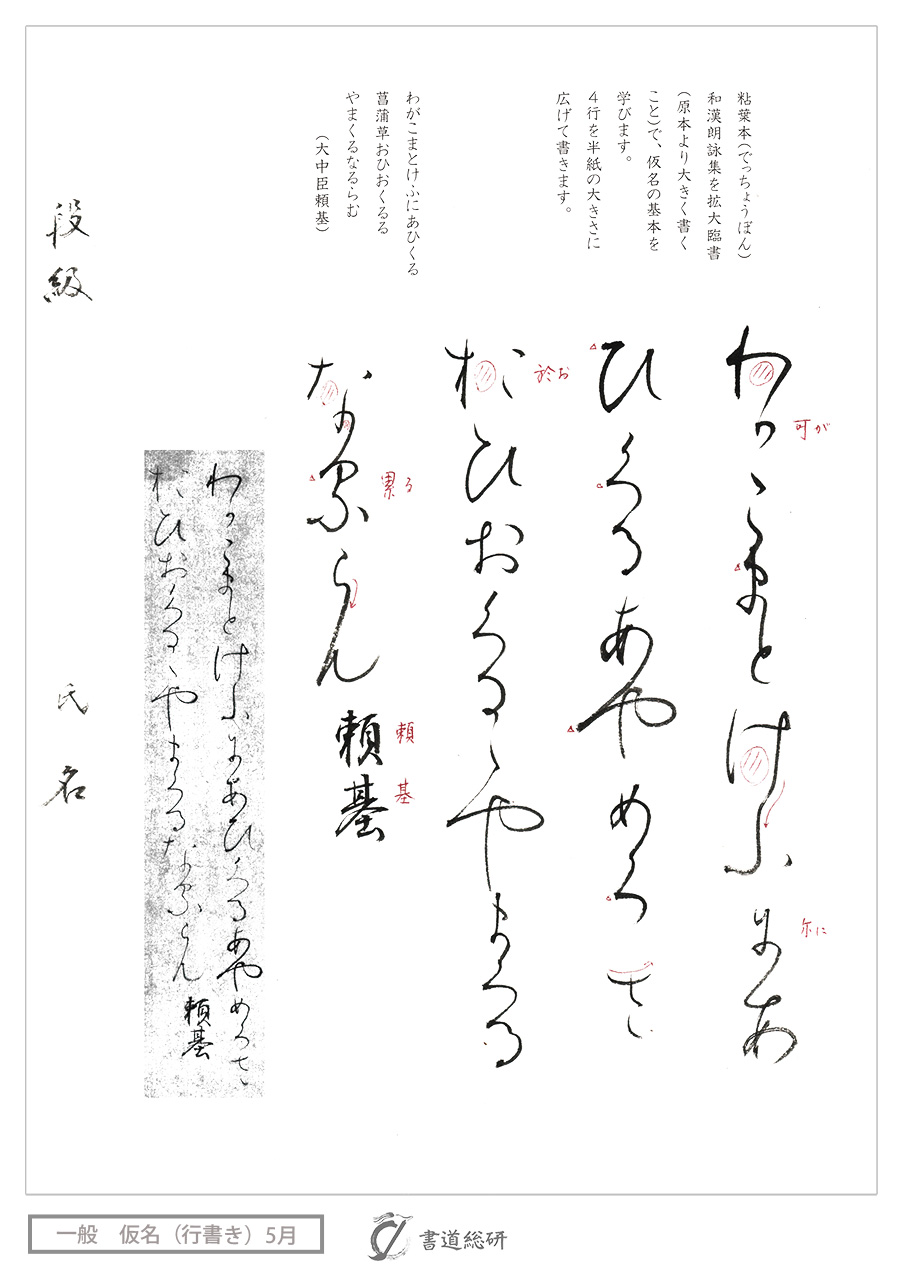 粘葉本(でっちょうぼん)
和漢朗詠集を拡大臨書
(原本より大きく書く
こと)で、仮名の基本を
学びます。
4行を半紙の大きさに
広げて書きます。
わがこまとけふにあひくる
菖蒲草おひおくるる
やまくるなるらむ
(大中臣頼基)
わ可こまとけふ尓あ
可が
尓に
ひくるあやめくさ
於ひおくるゝやまくる
於お
なり累らん 頼基
累る
頼基
わ可こまとけふ尓あひくるあやめくさ
於ひおくるゝやまくるなり累らん 頼基
段級
氏名
一般 仮名(行書き)5月
書道総研